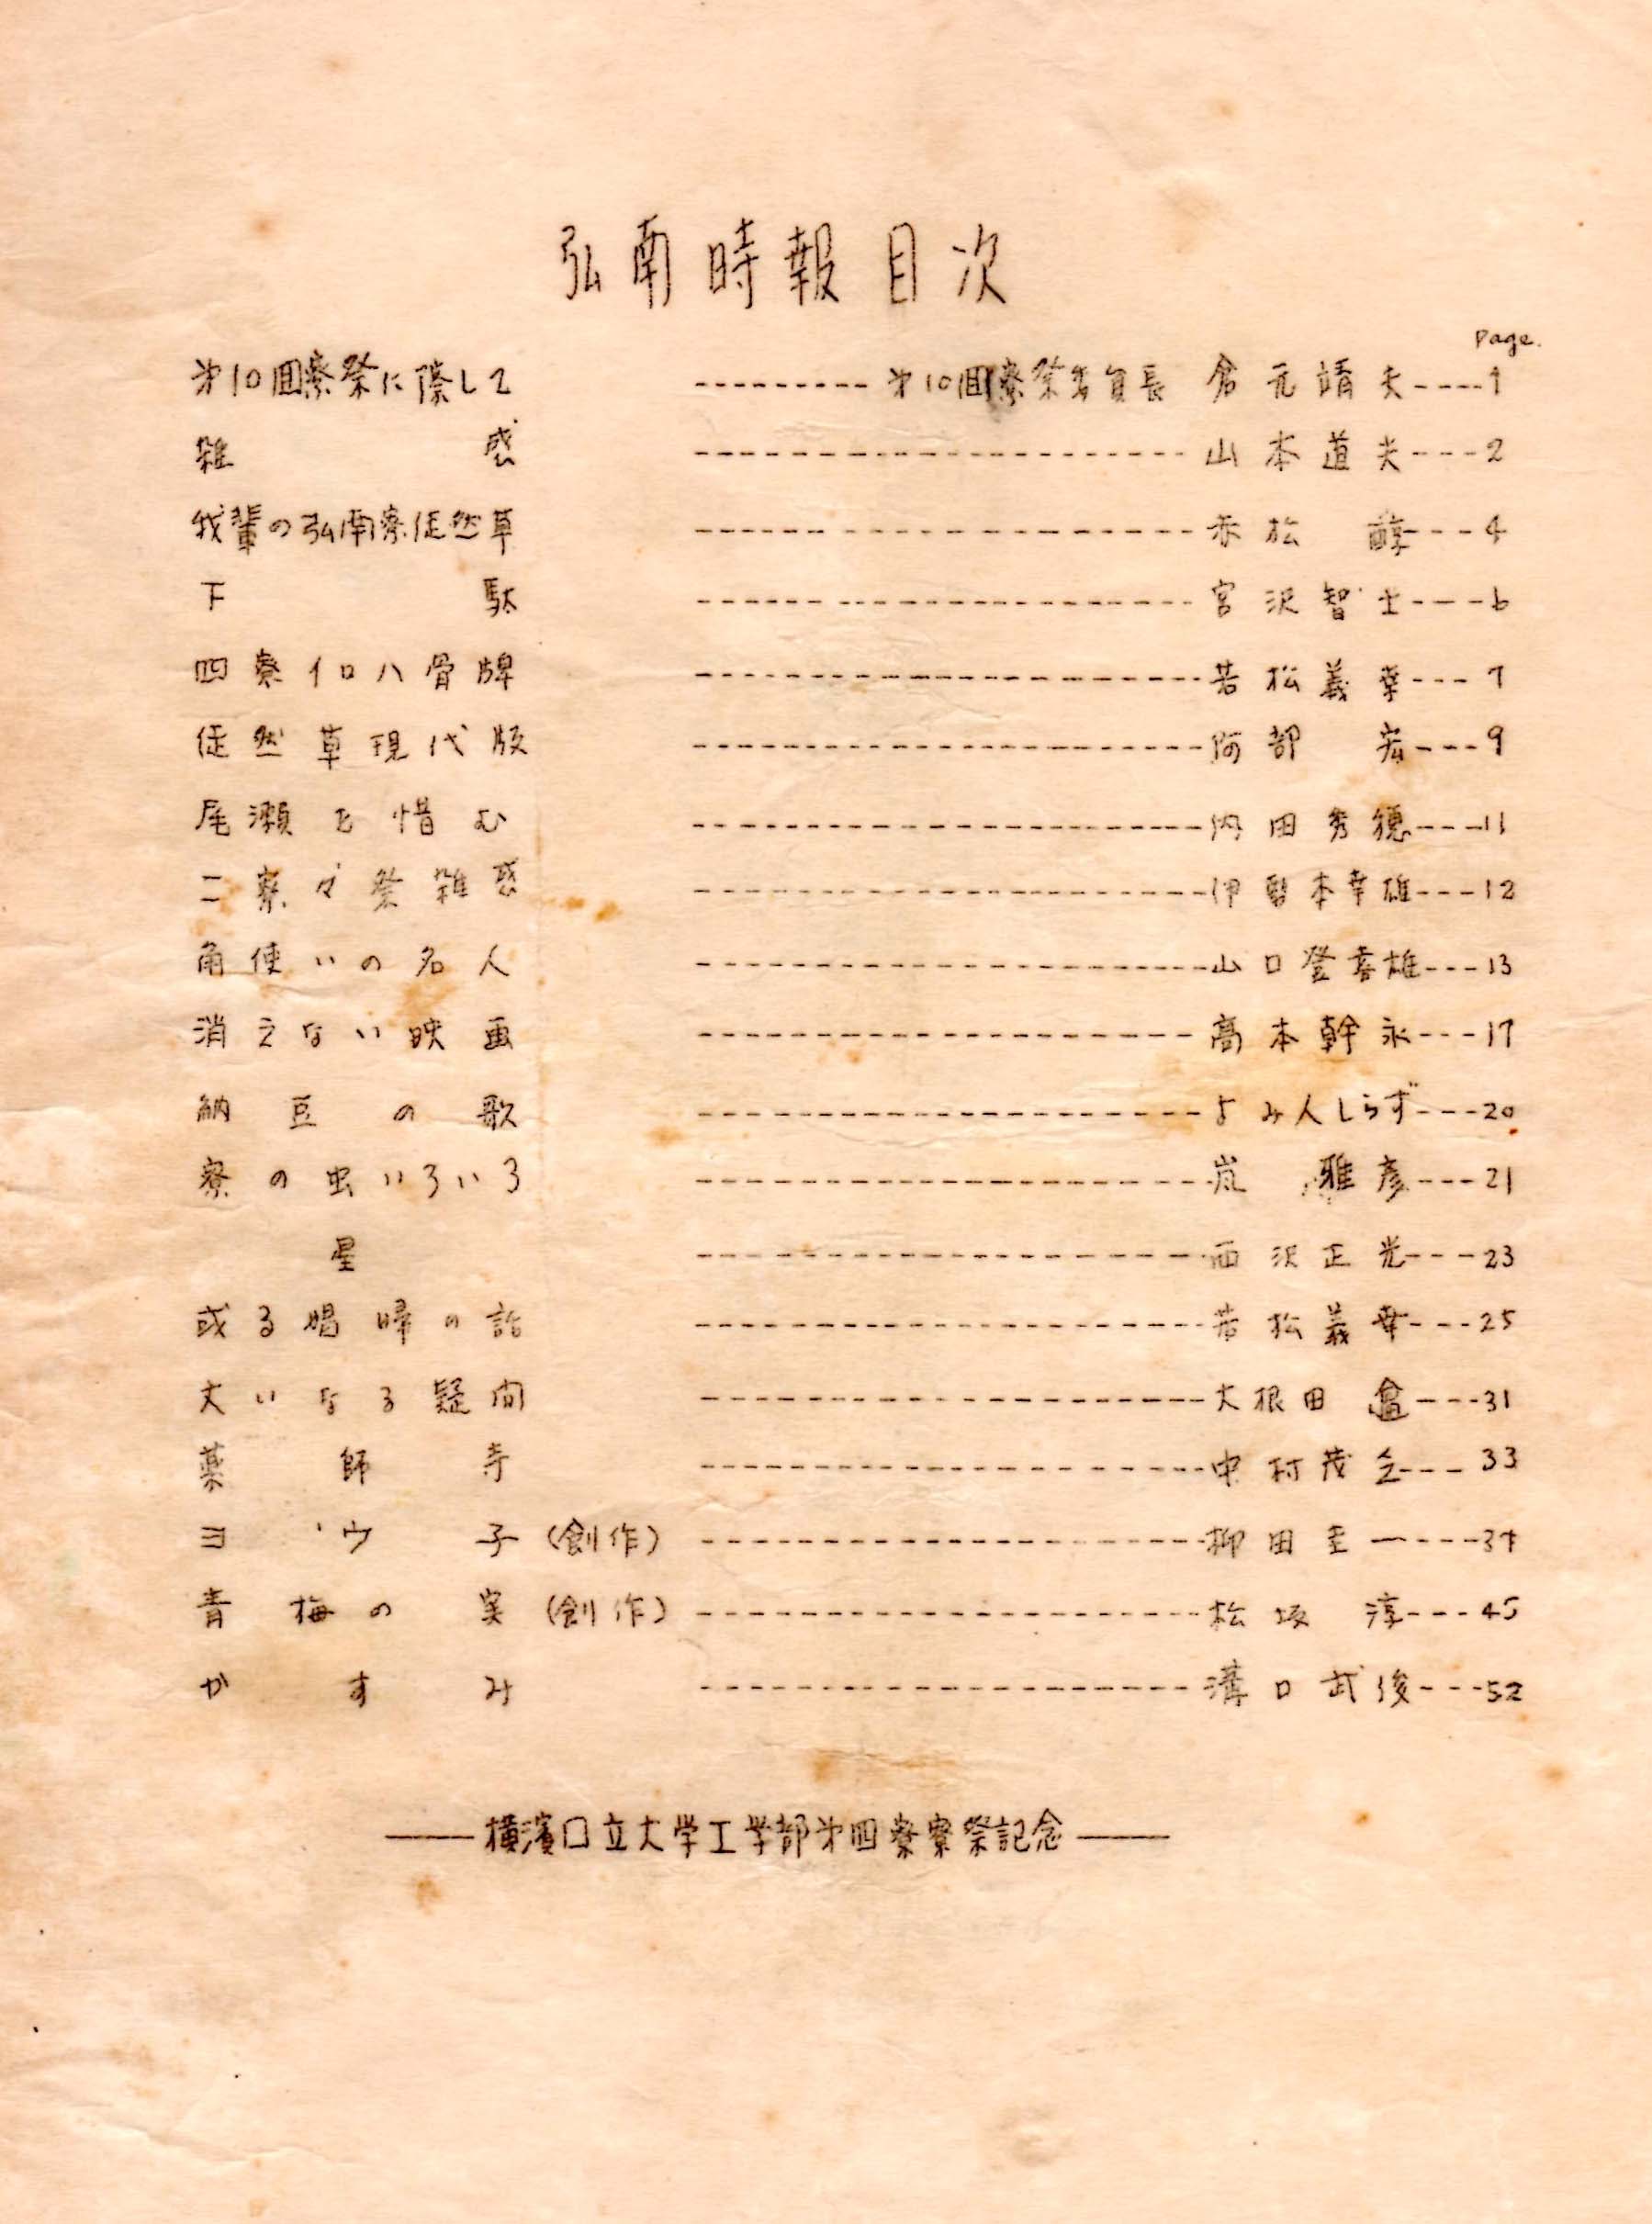 弘南時報目次
page.
第10回寮祭に際して --------- 第10回寮祭委員長 倉元靖夫----1
雑感 -------------------- 山本道夫---2
我輩の弘南寮徒然草 -------------------- 赤松 醇---4
下駄 -------------------- 宮沢智士---6
四寮イロハ骨牌 -------------------- 若松義幸---7
徒然草現代版 -------------------- 阿部 宏---9
尾瀬を惜む -------------------- 内田秀穂---11
二寮々祭雑感 -------------------- 伊 本幸雄---12
角使いの名人 -------------------- 山口登喜雄---13
消えない映画 -------------------- 高本幹永---17
納豆の歌 -------------------- よみ人しらず---20
寮の虫いろいろ -------------------- 嵐 雅彦---21
星 -------------------- 西沢正光---23
或る娼婦の話 -------------------- 若松義幸---25
大いなる疑問 -------------------- 大根田 ---31
薬師寺 -------------------- 中村茂 ---33
ヨウ子(創作) -------------------- 柳田圭一----34
青梅の実(創作) -------------------- 松坂 淳---45
かすみ -------------------- 溝口武俊---52
——横濱国立大学工学部第四寮寮祭記念——